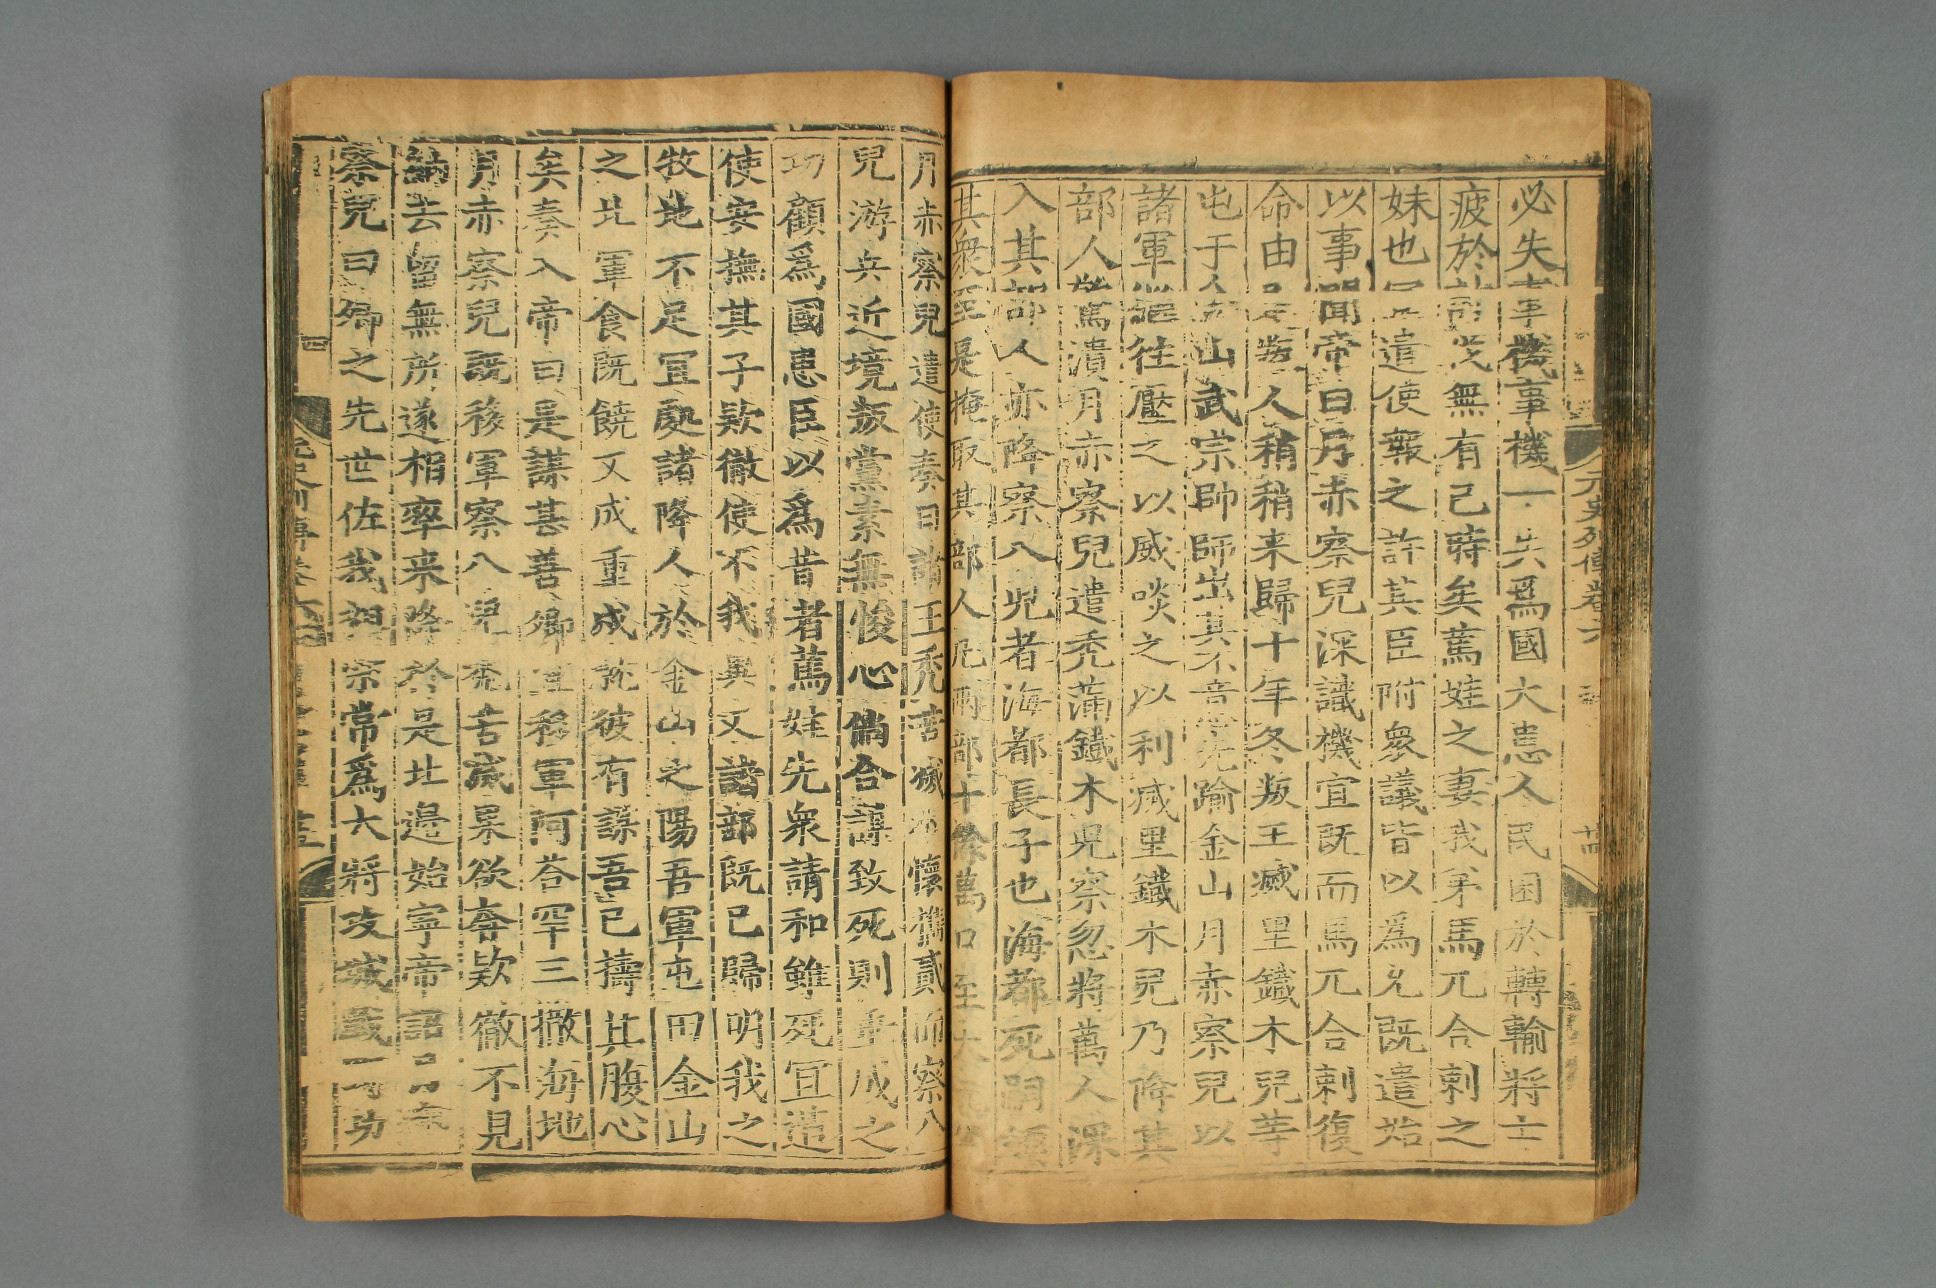 必失事機事機一失爲國大患人民困於轉輸將士
疲於討無有已時矣篤娃之妻我弟馬兀合剌之
妹也宜遣使報之許其臣附衆議皆以爲允既遣始
以事聞帝曰月赤察兒深識機宜既而馬兀合剌復
命由是叛人稍稍来歸十年冬叛王滅里鐵木兒等
屯于金山武宗帥師出其不意先踰金山月赤察兒以
諸軍繼往壓之以威啖之以利滅里鐵木兒乃降其
部人驚潰月赤察兒遣禿滿鐵木兒察忽將萬人深
入其部人亦降察八兒者海都長子也海都死嗣領
其衆至是掩取其部人凡兩部十餘萬口至大元年
月赤察兒遣使奏曰諸王禿苦滅本懷攜貳而察八
兒游兵近境叛黨素無悛心倘合謀致死則垂成之
功顧爲國患臣以爲昔者篤娃先衆請和雖死宜遣
使安撫其子欵徹使不我異又諸部既已歸明我之
牧地不足宜處諸降人於金山之陽吾軍屯田金山
之北軍食既饒又成重戍就彼有謀吾已擣其腹心
矣奏入帝曰是謀甚善卿宜移軍阿荅罕三撒海地
月赤察兒既移軍察八兒禿苦滅果欲奔欵徹不見
納去留無所遂相率来降於是北邊始寧帝詔月赤
察兒曰卿之先世佐我祖宗常爲大將攻城戰功
元史列傳卷六